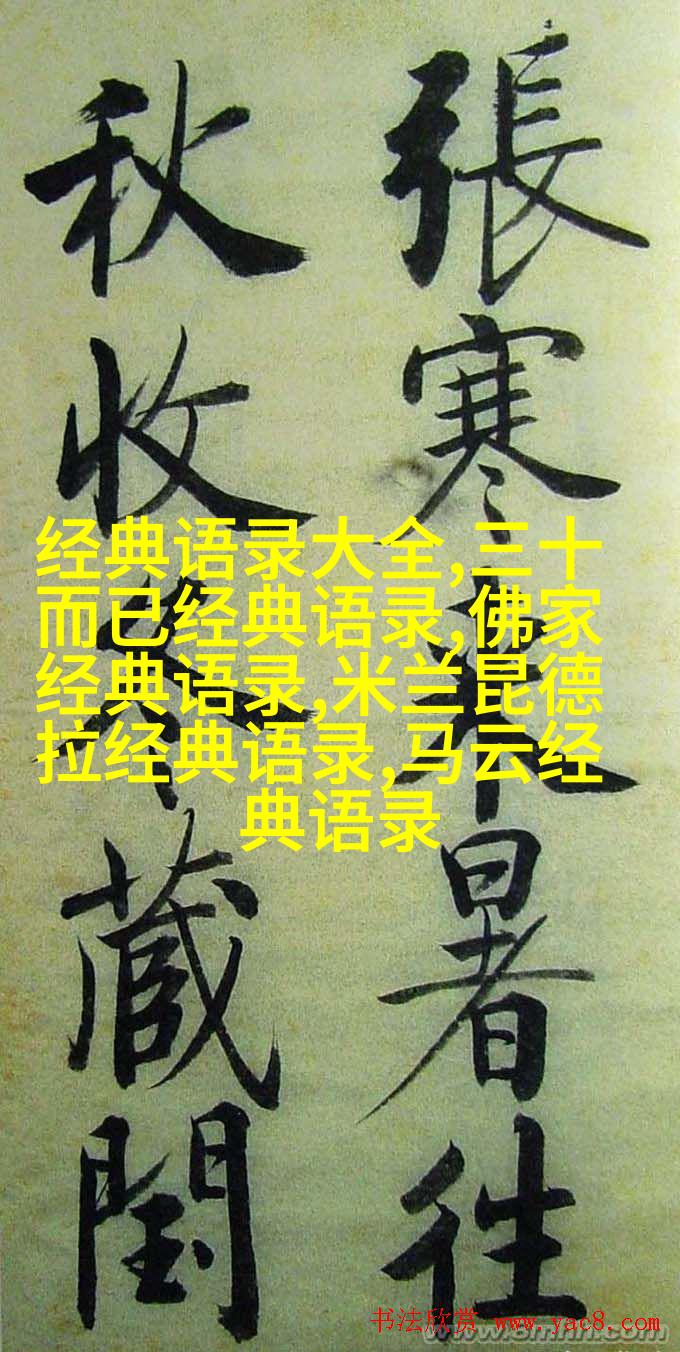 張寒来暑往
秋收冬藏閏
经典语录大全,三十
而已经典语录,佛家
经典语录,米兰昆德
拉经典语录,马云经
典语录
书法欣赏 www.yac8.com